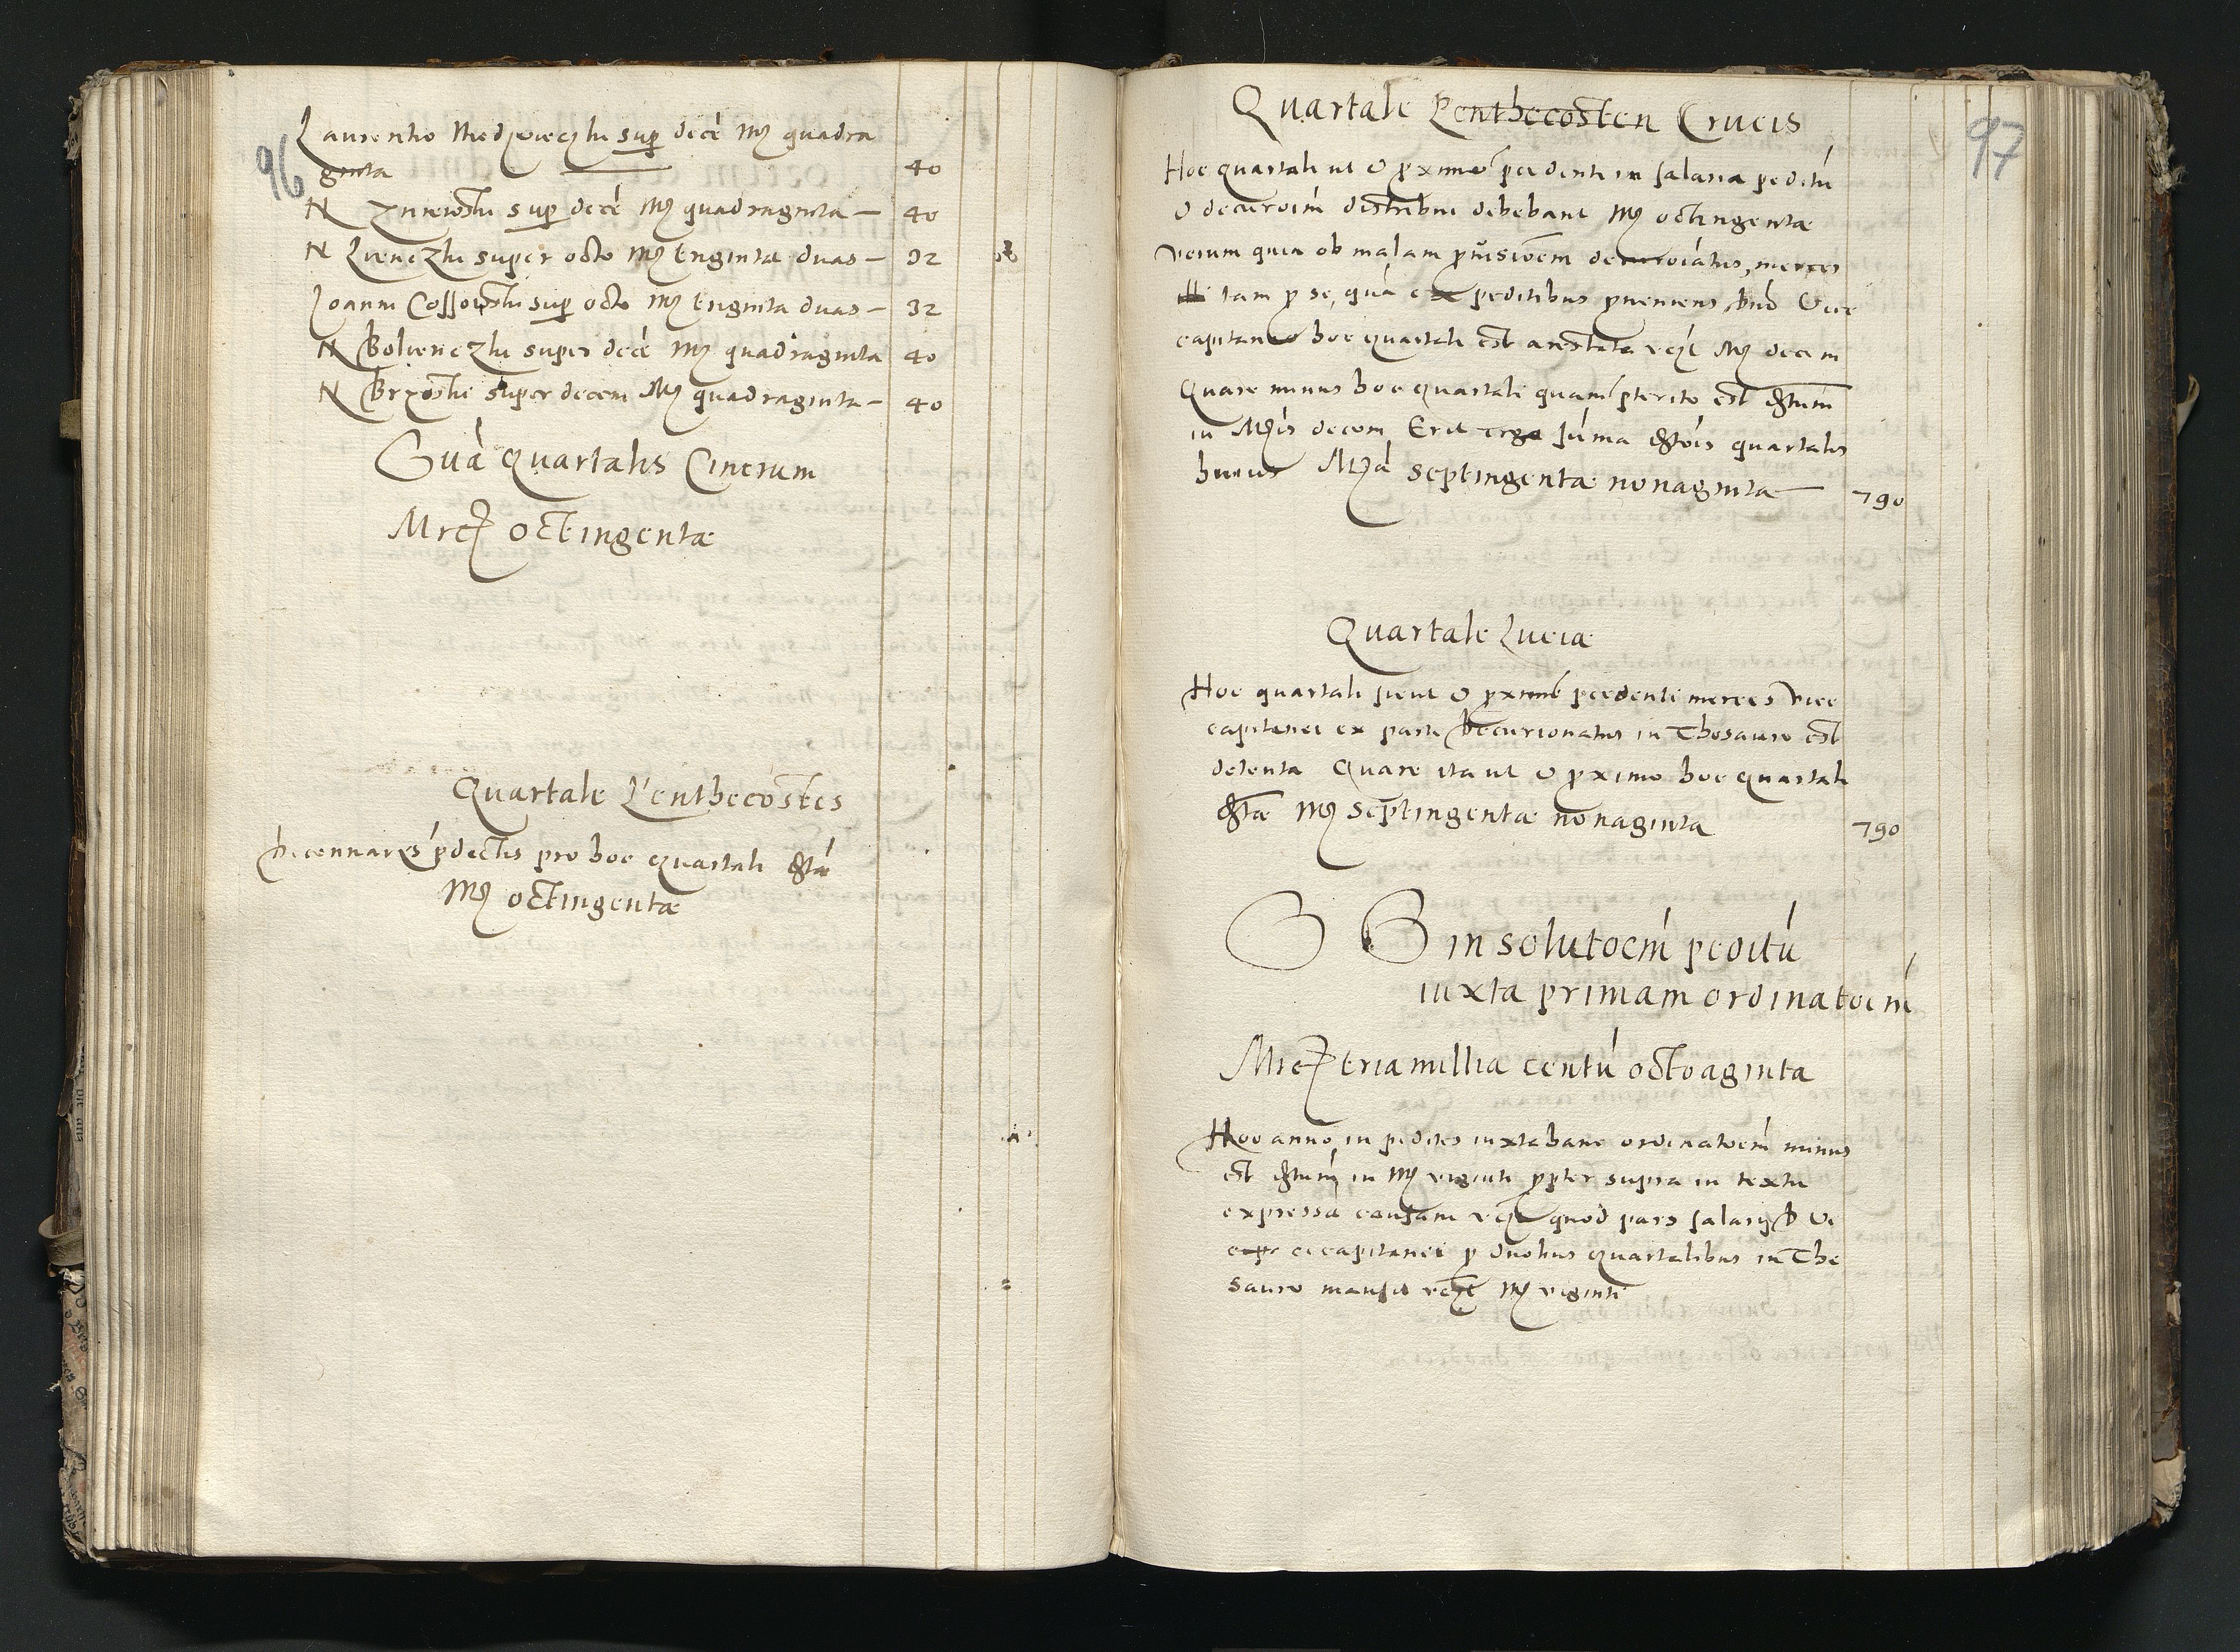 96
Laurentio Medzwieczki sup decē Mrc quadra
ginta 40
N Zmiewski sup decē Mrc quadraginta – 40
N Lwenczki super octo Mrc triginta duas – 32
Joanni Cossowski sup octo Mrc triginta duas – 32
N Bolienczki super decē Mrc quadraginta 40
N Brzoski super decem Mrc quadraginta – 40
Suā quartalis Cinerum
Mrc octingentæ
Quartale Penthecostes
Decennariis pdictis pro hoc quartali dstā
Mrc octingentæ
97
Quartale Penthecosten Crucis
Hoc quartali ut & pximo pcedenti in salaria peditū
& decuroim distribui debebant Mrc octingentæ
verum quia ob malam puisioēm decuroiatus, merces
tam p se, quā ex peditibus pveniens dno Vice
capitaneo hoc quartali est arestata vczt Mrc decem
Quare minus hoc quartali quam pterito est dstum
in Mrcis decem Erit ergo sūma dstois quartalis
huius Mrcā septingentæ nonaginta – 790
Quartale Luciæ
Hoc quartali sicut & pximo pcedenti merces vice
capitanei ex parte decurionatus in Thesauro est
detenta Quare ita ut & pximo hoc quartali
dstæ Mrc septingentæ nonaginta 790
S S in solutoem peditū
iuxta primam ordinatoem
Mrc tria millia centū octoaginta
Hoc anno in pedites iuxta hanc ordinatoem minus
est dstum in Mrc viginti ppter supra in textu
expressā causam vczt quod pars salarij D Vi
cecapitanei p duobus quartalibus in The
sauro mansit vczt Mrc viginti